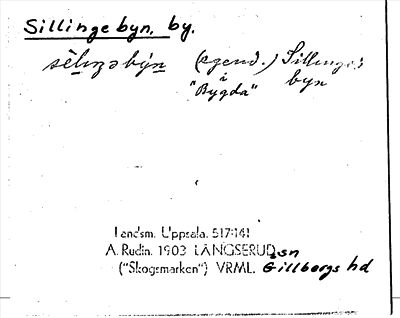 Sillingebyn, by.
sèlıŋəbýn (egend.) Sillinge
i byn
"Bygda"
Landsm. Uppsala. 517:141
A. Rudin. 1903 LÅNGSERUD sn
("Skogsmarken") VRML. Gillbergs hd